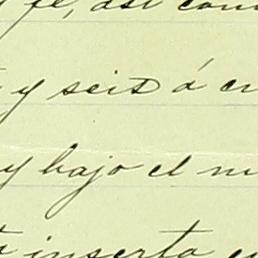 fe, así com
y seis á cu
y bajo el nu
inserta